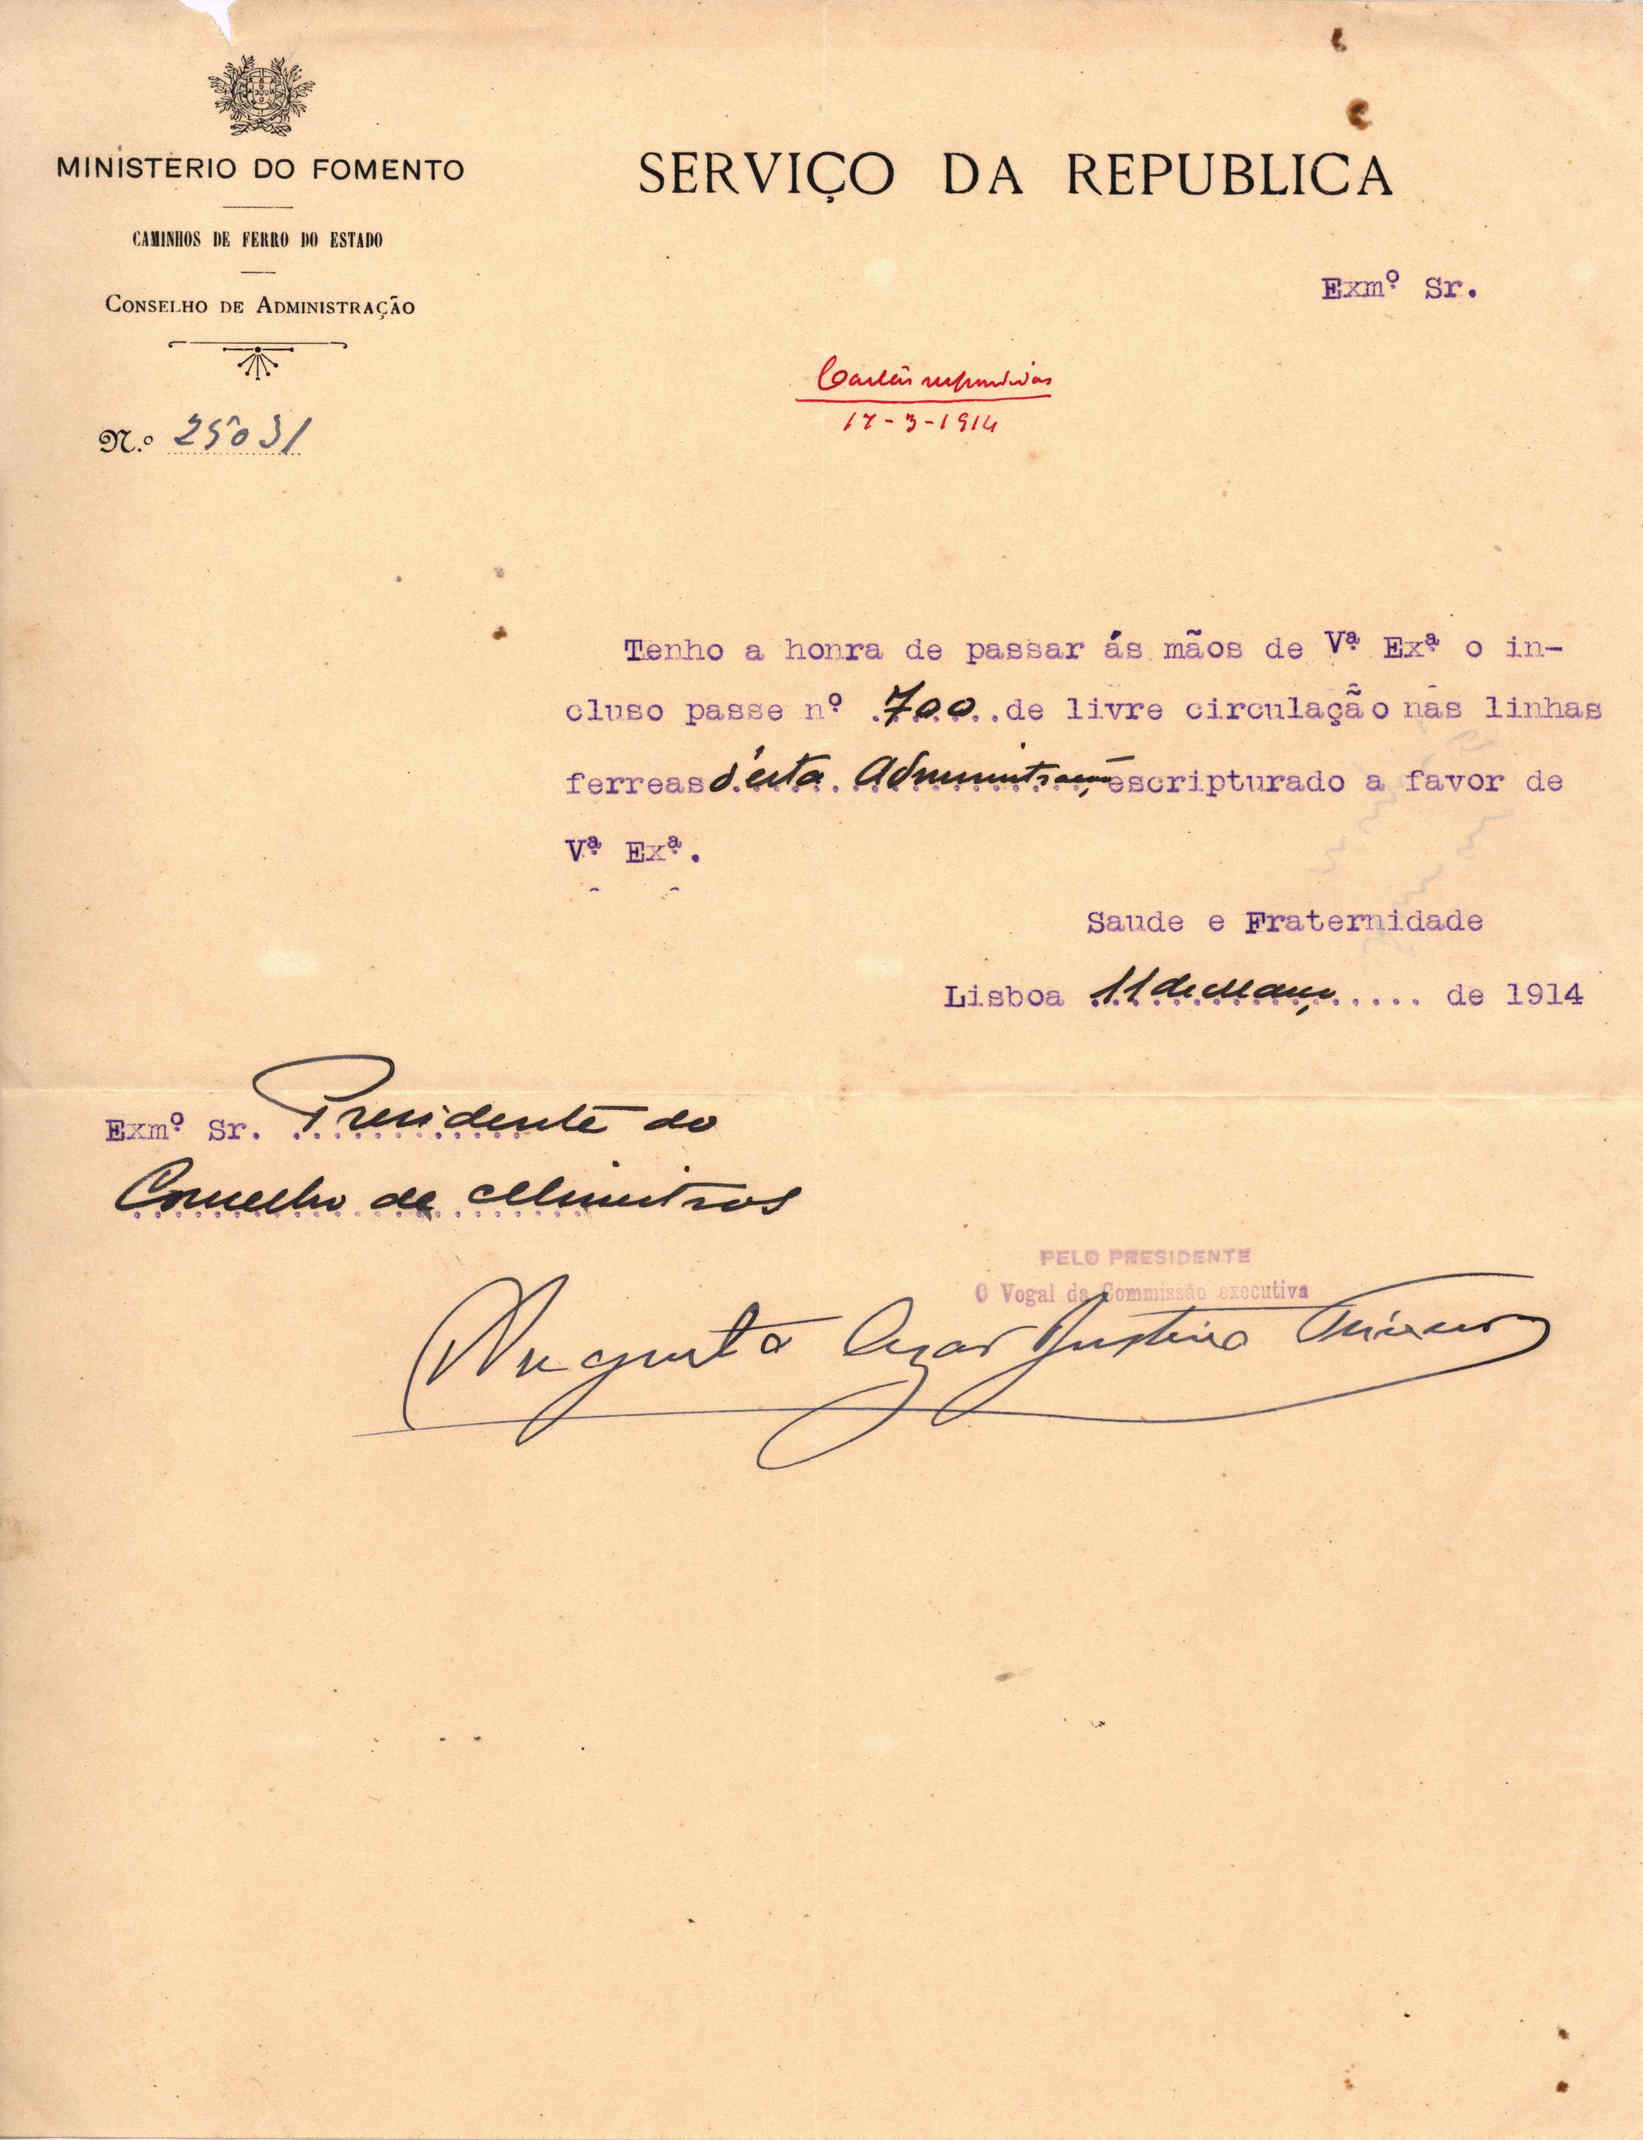 MINISTERIO DO FOMENTO
CAMINHOS DE FERRO DO ESTADO
CONSELHO DE ADMINISTRAÇÃO
N.º 25031
SERVIÇO DA REPUBLICA
Exmº Sr.
17-3-1914
Tenho a honra de passar ás mãos de Vª Exª o in-
cluso passe nº 700 de livre circulação nas linhas
ferreas d'esta Administração escripturado a favor de
Vª Exª.
Saude e Fraternidade
Lisboa 11 de Março de 1914
Exmº Sr. Presidente do
Conselho de Ministros
PELO PRESIDENTE
O Vogal da Commissão executiva
Augusto Cezar Justino Teixeira